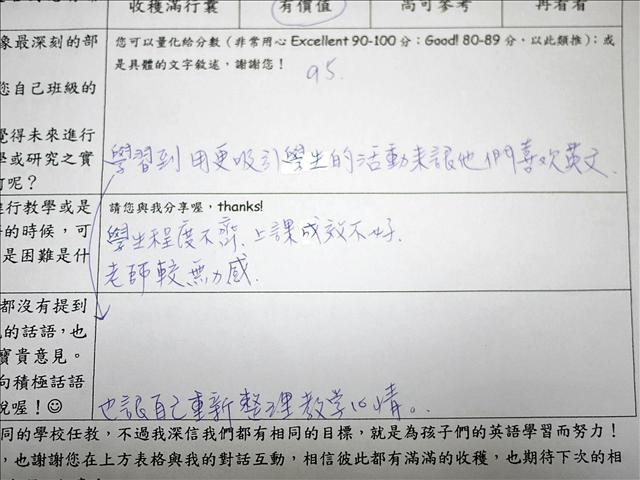 收穫滿行囊 有價值 尚可參考 再看看
像最深刻的部
您自己班級的
覺得未來進行
學或研究之實
可呢？
您可以量化給分數（非常用心 Excellent 90-100 分；Good! 80-89 分，以此類推）；或
是具體的文字敘述，謝謝您！
95.
學習到 用更吸引學生的活動來讓他們喜歡英文.
進行教學或是
的時候，可
是困難是什
請您與我分享喔，thanks!
學生程度不齊. 上課成效不好.
老師較無力感.
都沒有提到
的話語，也
寶貴意見。
向積極話語
說喔！☺
也讓自己重新整理教学心情。.
同的學校任教，不過我深信我們都有相同的目標，就是為孩子們的英語學習而努力！
，也謝謝您在上方表格與我的對話互動，相信彼此都有滿滿的收穫，也期待下次的相